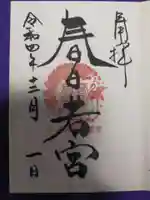 奉拝
春日若宮
令和四年十二月一日